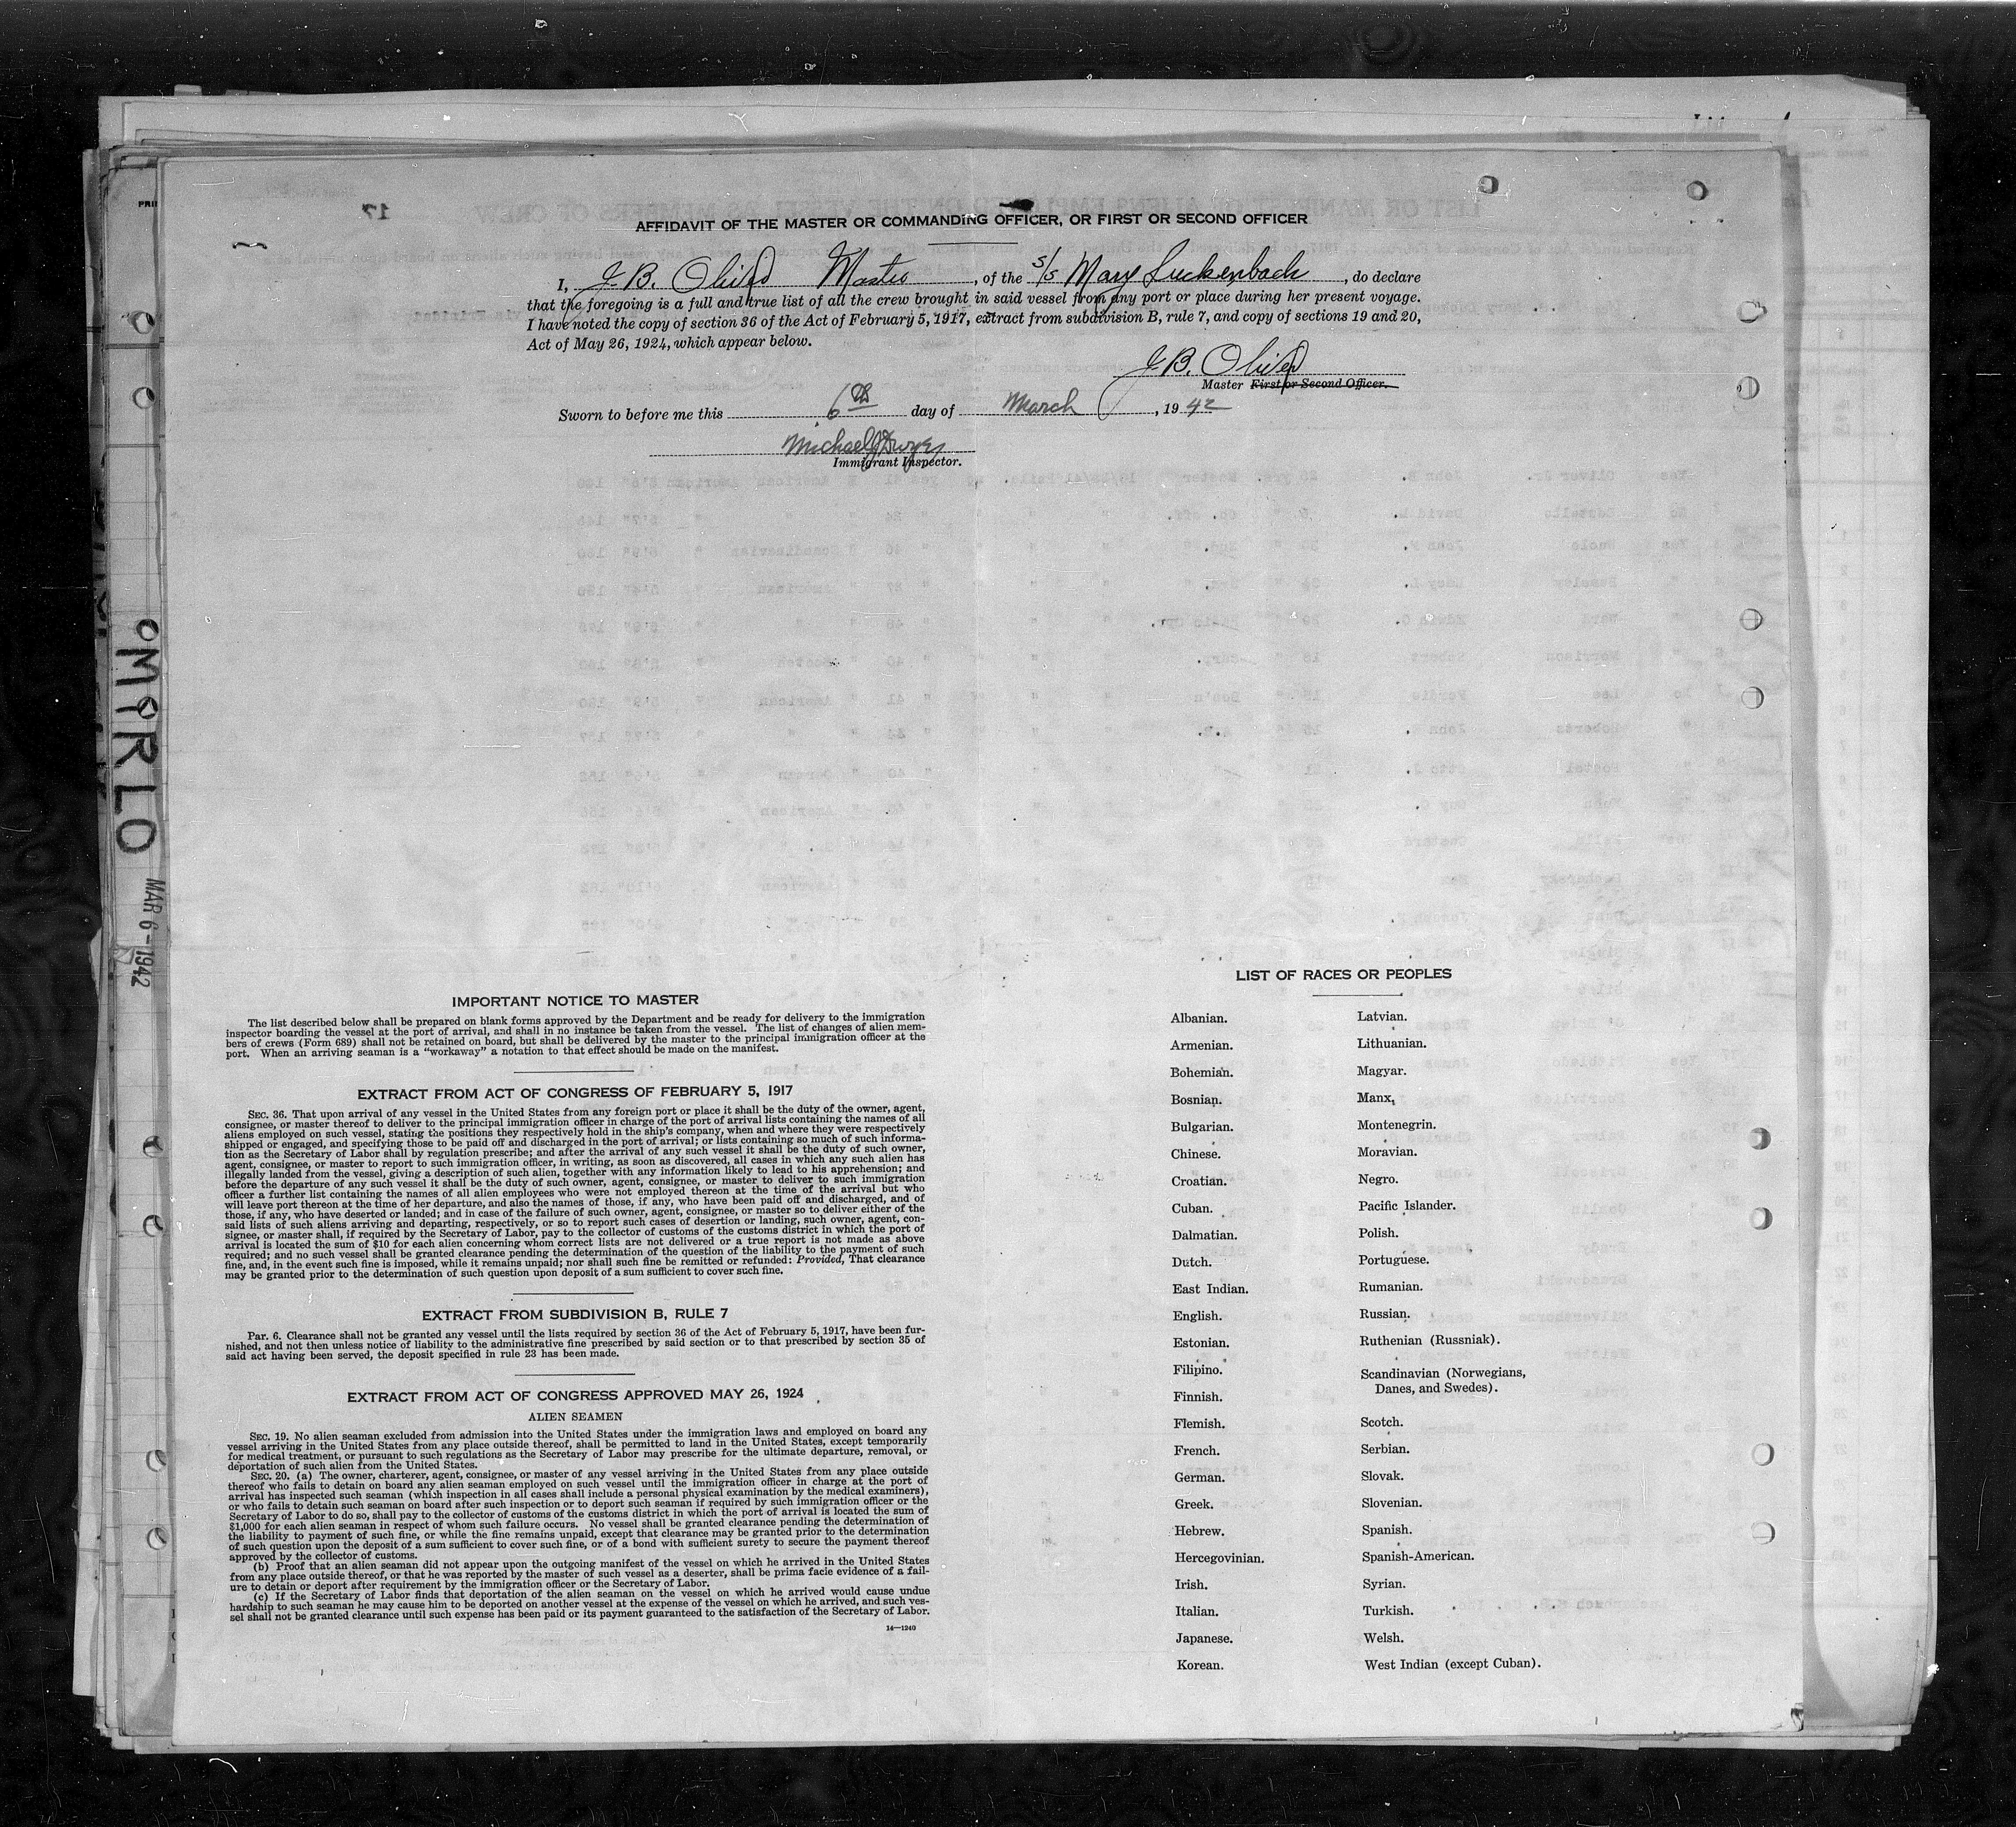 17
AFFIDAVIT OF THE MASTER OR COMMANDING OFFICER, OR FIRST OR SECOND OFFICER
I, J. B. Oliver Master, of the S/S Mary Luckenbach, do declare
that the foregoing is a full and true list of all the crew brought in said vessel from any port or place during her present voyage.
I have noted the copy of section 36 of the Act of February 5, 1917, extract from subdivision B, rule 7, and copy of sections 19 and 20,
Act of May 26, 1924, which appear below.
J. B. Oliver
Master First or Second Officer.
Sworn to before me this 6th day of March, 1942
Michael J Dwyer
Immigrant Inspector.
OMARLO
MAR 6-1942
IMPORTANT NOTICE TO MASTER
The list described below shall be prepared on blank forms approved by the Department and be ready for delivery to the immigration
inspector boarding the vessel at the port of arrival, and shall in no instance be taken from the vessel. The list of changes of alien mem-
bers of crews (Form 689) shall not be retained on board, but shall be delivered by the master to the principal immigration officer at the
port. When an arriving seaman is a "workaway" a notation to that effect should be made on the manifest.
EXTRACT FROM ACT OF CONGRESS OF FEBRUARY 5, 1917
SEC. 36. That upon arrival of any vessel in the United States from any foreign port or place it shall be the duty of the owner, agent,
consignee, or master thereof to deliver to the principal immigration officer in charge of the port of arrival lists containing the names of all
aliens employed on such vessel, stating the positions they respectively hold in the ship's company, when and where they were respectively
shipped or engaged, and specifying those to be paid off and discharged in the port of arrival; or lists containing so much of such informa-
tion as the Secretary of Labor shall by regulation prescribe; and after the arrival of any such vessel it shall be the duty of such owner,
agent, consignee, or master to report to such immigration officer, in writing, as soon as discovered, all cases in which any such alien has
illegally landed from the vessel, giving a description of such alien, together with any information likely to lead to his apprehension; and
before the departure of any such vessel it shall be the duty of such owner, agent, consignee, or master to deliver to such immigration
officer a further list containing the names of all alien employees who were not employed thereon at the time of the arrival but who
will leave port thereon at the time of her departure, and also the names of those, if any, who have been paid off and discharged, and of
those, if any, who have deserted or landed; and in case of the failure of such owner, agent, consignee, or master so to deliver either of the
said lists of such aliens arriving and departing, respectively, or so to report such cases of desertion or landing, such owner, agent, con-
signee, or master shall, if required by the Secretary of Labor, pay to the collector of customs of the customs district in which the port of
arrival is located the sum of $10 for each alien concerning whom correct lists are not delivered or a true report is not made as above
required; and no such vessel shall be granted clearance pending the determination of the question of the liability to the payment of such
fine, and, in the event such fine is imposed, while it remains unpaid; nor shall such fine be remitted or refunded: Provided, That clearance
may be granted prior to the determination of such question upon deposit of a sum sufficient to cover such fine.
EXTRACT FROM SUBDIVISION B, RULE 7
Par. 6. Clearance shall not be granted any vessel until the lists required by section 36 of the Act of February 5, 1917, have been fur-
nished, and not then unless notice of liability to the administrative fine prescribed by said section or to that prescribed by section 35 of
said act having been served, the deposit specified in rule 23 has been made.
EXTRACT FROM ACT OF CONGRESS APPROVED MAY 26, 1924
ALIEN SEAMEN
SEC. 19. No alien seaman excluded from admission into the United States under the immigration laws and employed on board any
vessel arriving in the United States from any place outside thereof, shall be permitted to land in the United States, except temporarily
for medical treatment, or pursuant to such regulations as the Secretary of Labor may prescribe for the ultimate departure, removal, or
deportation of such alien from the United States.
SEC. 20. (a) The owner, charterer, agent, consignee, or master of any vessel arriving in the United States from any place outside
thereof who fails to detain on board any alien seaman employed on such vessel until the immigration officer in charge at the port of
arrival has inspected such seaman (which inspection in all cases shall include a personal physical examination by the medical examiners),
or who fails to detain such seaman on board after such inspection or to deport such seaman if required by such immigration officer or the
Secretary of Labor to do so, shall pay to the collector of customs of the customs district in which the port of arrival is located the sum of
$1,000 for each alien seaman in respect of whom such failure occurs. No vessel shall be granted clearance pending the determination of
the liability to payment of such fine, or while the fine remains unpaid, except that clearance may be granted prior to the determination
of such question upon the deposit of a sum sufficient to cover such fine, or of a bond with sufficient surety to secure the payment thereof
approved by the collector of customs.
(b) Proof that an alien seaman did not appear upon the outgoing manifest of the vessel on which he arrived in the United States
from any place outside thereof, or that he was reported by the master of such vessel as a deserter, shall be prima facie evidence of a fail-
ure to detain or deport after requirement by the immigration officer or the Secretary of Labor.
(c) If the Secretary of Labor finds that deportation of the alien seaman on the vessel on which he arrived would cause undue
hardship to such seaman he may cause him to be deported on another vessel at the expense of the vessel on which he arrived, and such ves-
sel shall not be granted clearance until such expense has been paid or its payment guaranteed to the satisfaction of the Secretary of Labor.
14—1240
LIST OF RACES OR PEOPLES
Albanian.
Armenian.
Bohemian.
Bosnian.
Bulgarian.
Chinese.
Croatian.
Cuban.
Dalmatian.
Dutch.
East Indian.
English.
Estonian.
Filipino.
Finnish.
Flemish.
French.
German.
Greek.
Hebrew.
Hercegovinian.
Irish.
Italian.
Japanese.
Korean.
Latvian.
Lithuanian.
Magyar.
Manx.
Montenegrin.
Moravian.
Negro.
Pacific Islander.
Polish.
Portuguese.
Rumanian.
Russian.
Ruthenian (Russniak).
Scandinavian (Norwegians,
Danes, and Swedes).
Scotch.
Serbian.
Slovak.
Slovenian.
Spanish.
Spanish-American.
Syrian.
Turkish.
Welsh.
West Indian (except Cuban).